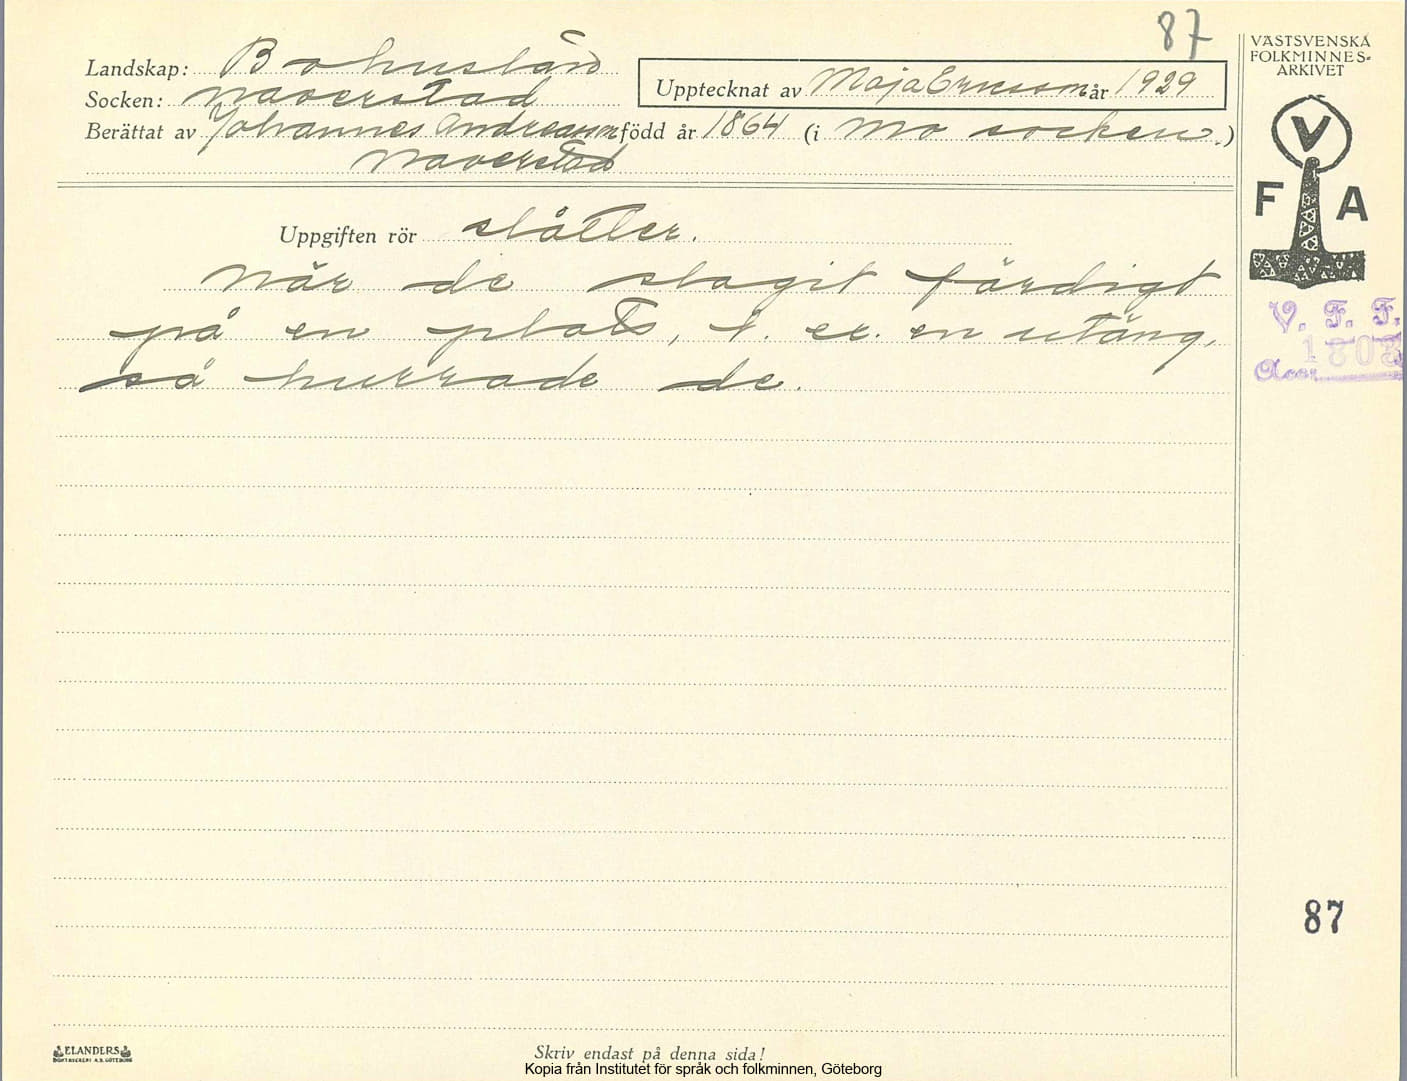 87
Landskap: Bohuslän
Socken: Naverstad
Upptecknat av Maja Ericsson år 1929
Berättat av Johannes Andreasson född år 1864 (i Mo socken.)
Naverstad
VÄSTSVENSKA
FOLKMINNES-
ARKIVET
V
F A
Uppgiften rör slåtter.
När de slagit färdigt
på en plats, t. ex. en utäng,
så hurrade de.
V. F. F.
1803
Acc.
87
ELANDERS
BOKTRYCKERI A.B. GÖTEBORG
Skriv endast på denna sida!
Kopia från Institutet för språk och folkminnen, Göteborg